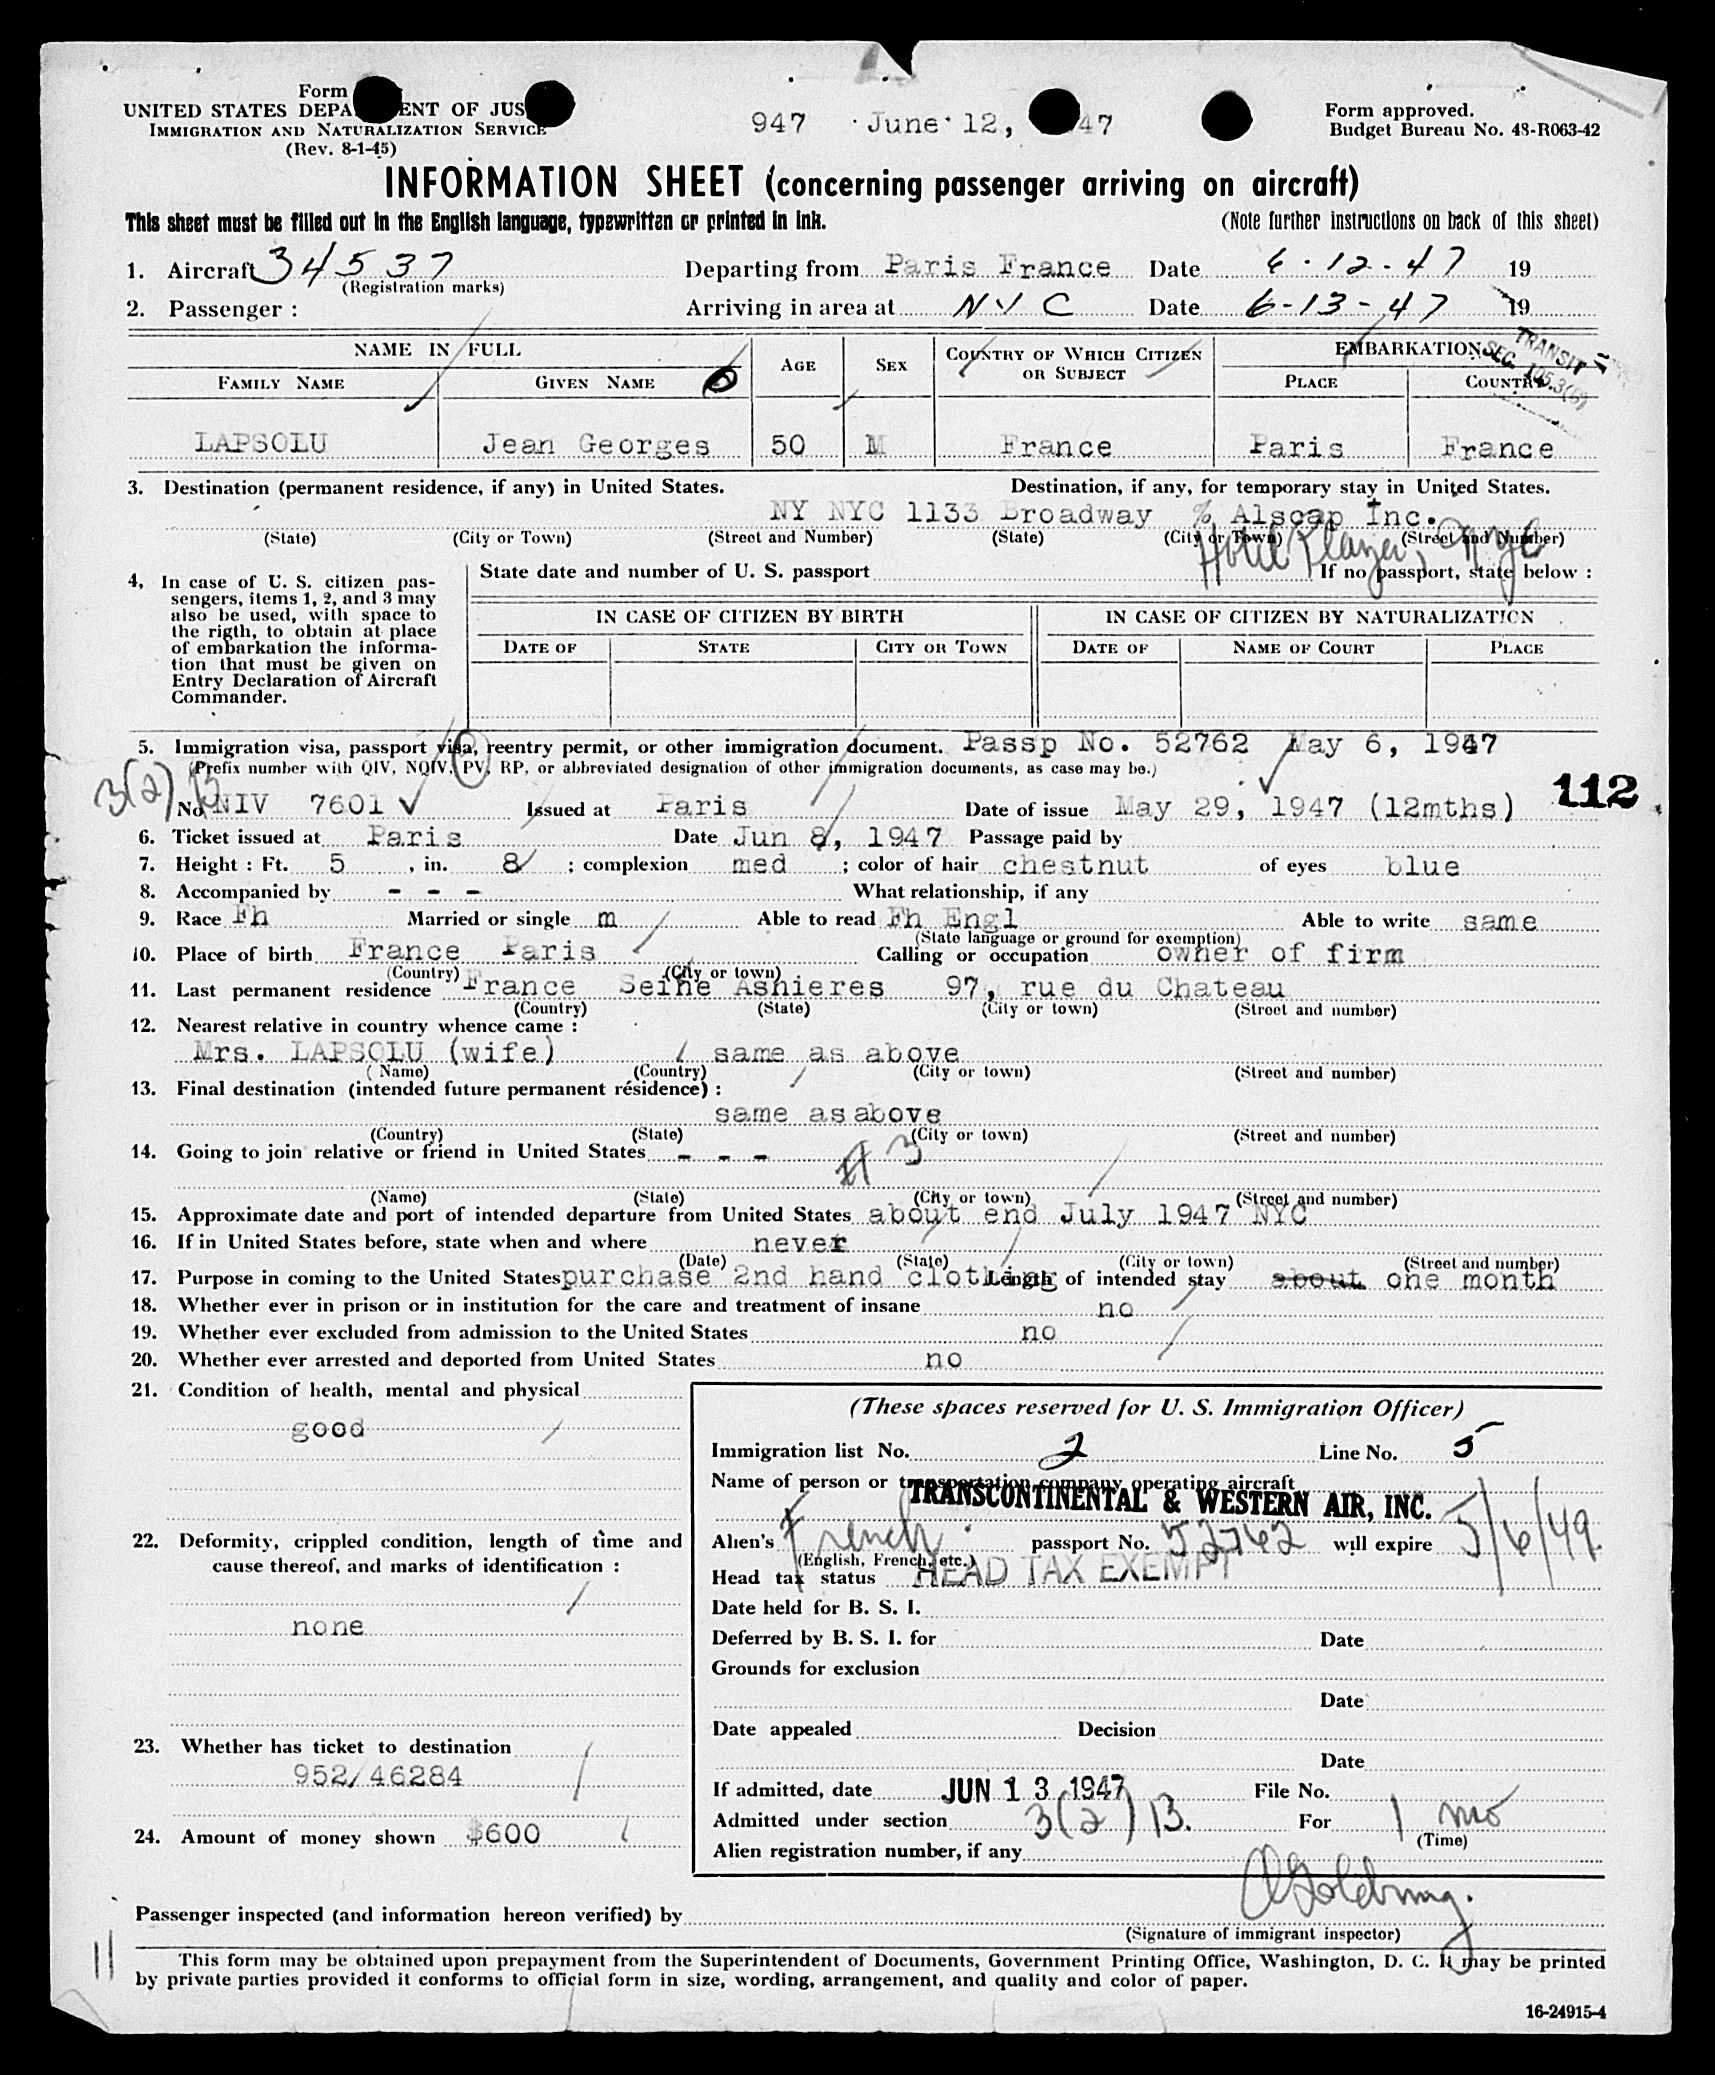 Form
UNITED STATES DEPA ENT OF JUS
IMMIGRATION AND NATURALIZATION SERVICE
(Rev. 8-1-45)
947 June 12, 47
Form approved.
Budget Bureau No. 43-R063-42
INFORMATION SHEET (concerning passenger arriving on aircraft)
This sheet must be filled out in the English language, typewritten or printed in ink.
(Note further instructions on back of this sheet)
1. Aircraft 34537 Departing from Paris France Date 6-12-47 19
(Registration marks)
2. Passenger : Arriving in area at NYC Date 6-13-47 19
TRANSIT
SEC. 105.3(6)
NAME IN FULL AGE SEX COUNTRY OF WHICH CITIZEN OR SUBJECT EMBARKATION
FAMILY NAME GIVEN NAME PLACE COUNTRY
LAPSOLU Jean Georges 50 M France Paris France
3. Destination (permanent residence, if any) in United States. Destination, if any, for temporary stay in United States.
NY NYC 1133 Broadway % Alscap Inc.
(State) (City or Town) (Street and Number) (State) (City or Town) (Street and Number)
Hotel NYC
4, In case of U. S. citizen pas-
sengers, items 1, 2, and 3 may
also be used, with space to
the rigth, to obtain at place
of embarkation the informa-
tion that must be given on
Entry Declaration of Aircraft
Commander.
State date and number of U. S. passport If no passport, state below :
IN CASE OF CITIZEN BY BIRTH IN CASE OF CITIZEN BY NATURALIZATION
DATE OF STATE CITY OR TOWN DATE OF NAME OF COURT PLACE
5. Immigration visa, passport visa, reentry permit, or other immigration document. Passp No. 52762 May 6, 1947
(Prefix number with QIV, NQIV, PV, RP, or abbreviated designation of other immigration documents, as case may be.)
3(2) B
112
No NIV 7601 Issued at Paris Date of issue May 29, 1947 (12mths)
6. Ticket issued at Paris Date Jun 8, 1947 Passage paid by
7. Height : Ft. 5 , in. 8 ; complexion med ; color of hair chestnut of eyes blue
8. Accompanied by - - - What relationship, if any
9. Race Fh Married or single m Able to read Fh Engl Able to write same
(State language or ground for exemption)
10. Place of birth France Paris Calling or occupation owner of firm
(Country) (City or town)
11. Last permanent residence France Seine Asnieres 97, rue du Chateau
(Country) (State) (City or town) (Street and number)
12. Nearest relative in country whence came :
Mrs. LAPSOLU (wife) same as above
(Name) (Country) (City or town) (Street and number)
13. Final destination (intended future permanent résidence) :
same as above
(Country) (State) (City or town) (Street and number)
14. Going to join relative or friend in United States - - -
#3
(Name) (State) (City or town) (Street and number)
15. Approximate date and port of intended departure from United States about end July 1947 NYC
16. If in United States before, state when and where never
(Date) (State) (City or town) (Street and number)
17. Purpose in coming to the United States purchase 2nd hand clothing Length of intended stay about one month
18. Whether ever in prison or in institution for the care and treatment of insane no
19. Whether ever excluded from admission to the United States no
20. Whether ever arrested and deported from United States no
21. Condition of health, mental and physical
good
22. Deformity, crippled condition, length of time and
cause thereof, and marks of identification :
none
23. Whether has ticket to destination
952/46284
24. Amount of money shown $600
(These spaces reserved for U. S. Immigration Officer)
Immigration list No. 2 Line No. 5
Name of person or transportation company operating aircraft
TRANSCONTINENTAL & WESTERN AIR, INC.
Alien's French passport No. 52762 will expire 5/6/49
(English, French, etc.)
Head tax status HEAD TAX EXEMPT
Date held for B. S. I.
Deferred by B. S. I. for Date
Grounds for exclusion
Date
Date appealed Decision
Date
If admitted, date JUN 13 1947 File No.
Admitted under section 3(2)B. For 1 mo
(Time)
Alien registration number, if any
Passenger inspected (and information hereon verified) by
(Signature of immigrant inspector)
11
This form may be obtained upon prepayment from the Superintendent of Documents, Government Printing Office, Washington, D. C. It may be printed
by private parties provided it conforms to official form in size, wording, arrangement, and quality and color of paper.
16-24915-4